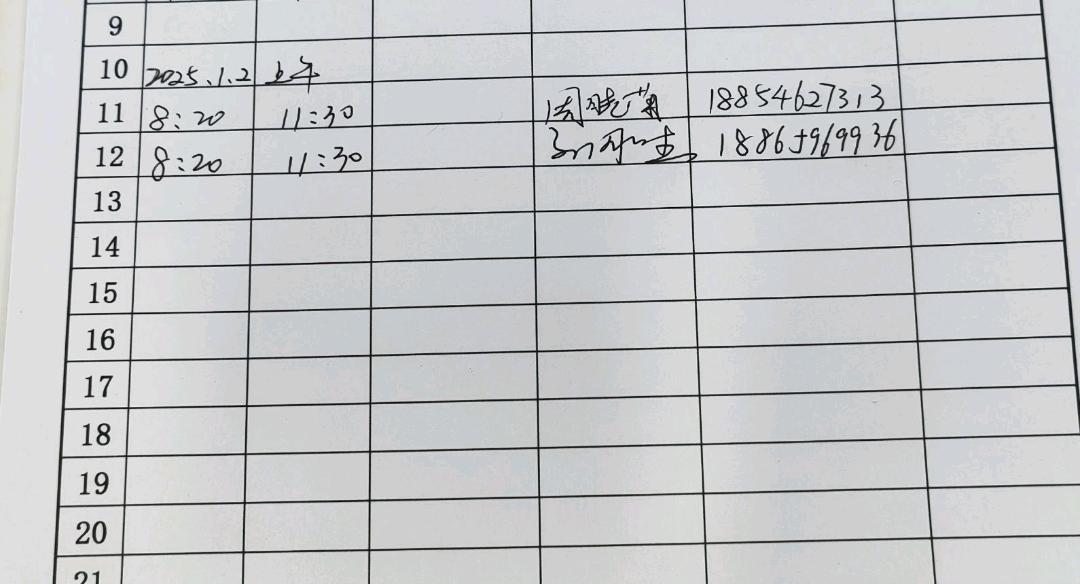 9
10 2025.1.2 上午
11 8:20 11:30 周晓菊 18854627313
12 8:20 11:30 18865969936
13
14
15
16
17
18
19
20
21